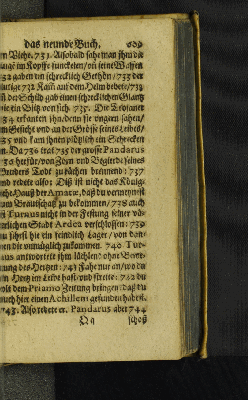 das neundte Buch. 609
m Viehe. 731. Alsobald sahe man ihm die
im Kopffe functelen/ seine Waffen
gaben ein schrecklich Gethön/ 733 der
blutige 732 Kam auf dem Helm bebete/ 733
der Schild gab einen schrecklichen Glantz
wie ein Blitz von sich. 737. Die
734 erkanten ihn/ denn sie sein
Gesicht und an der Grösse seines Leibes/
735 und kam ihnen plötzlich ein Schrecken
Da 736 trat 735 der grosse Pandarus
herfür/ von Zorn und Begierde seines
Bruders Todt zu rächen brennend: 737
und redete also: Diß ist nicht das Königliche
Hauß der Amatæ, daß du vermeynest
zum Brautschatz zu bekommen/ 738 auch
ist Turnus nicht in der Festung seiner
Stadt Ardea verschlossen: 739
du siehest hie ein feindlich Lager/ von dannen
dir unmüglich zukommen. 740 Turnus
antwortete ihm lächlend ohne
des Hertzen: 741 Fahe nur an/ wo du
ein Hertz im Leibe hast und streite: 742 du
solt dem Priamo Zeitung bringen/ daß du
auch hier einen Achillem gefunden habest.
743. Also redete er. Pandarus aber 744
Qq schoß